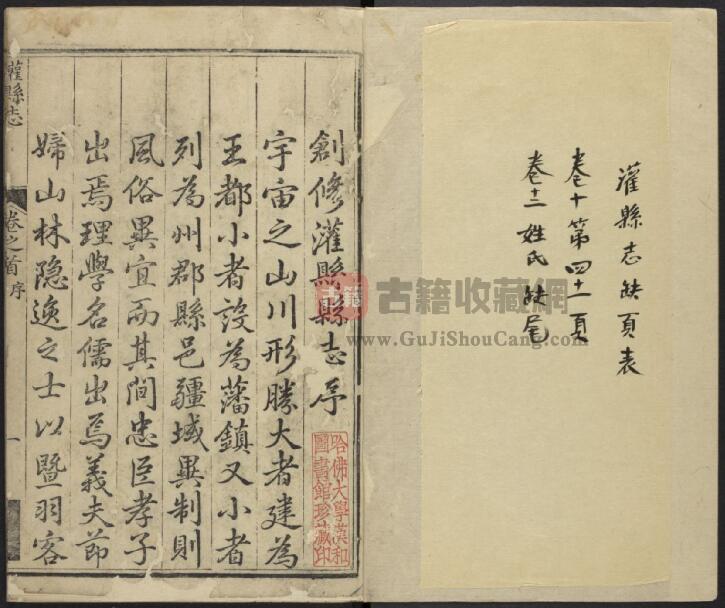 灌縣志缺頁表
卷十第四十一頁
卷十二姓氏缺尾
創修灌縣縣志序
宇宙之山川形勝大者建為
王都小者設為藩鎮又小者
列為州郡縣邑疆域異制則
風俗異宜而其間忠臣孝子
出焉理學名儒出焉義夫節
婦山林隐逸之士以暨羽客
灌縣志
卷之首 序
一
哈佛大學漢和
圖書館珍藏印
古籍
古籍收藏网
www.GuJiShouCang.com